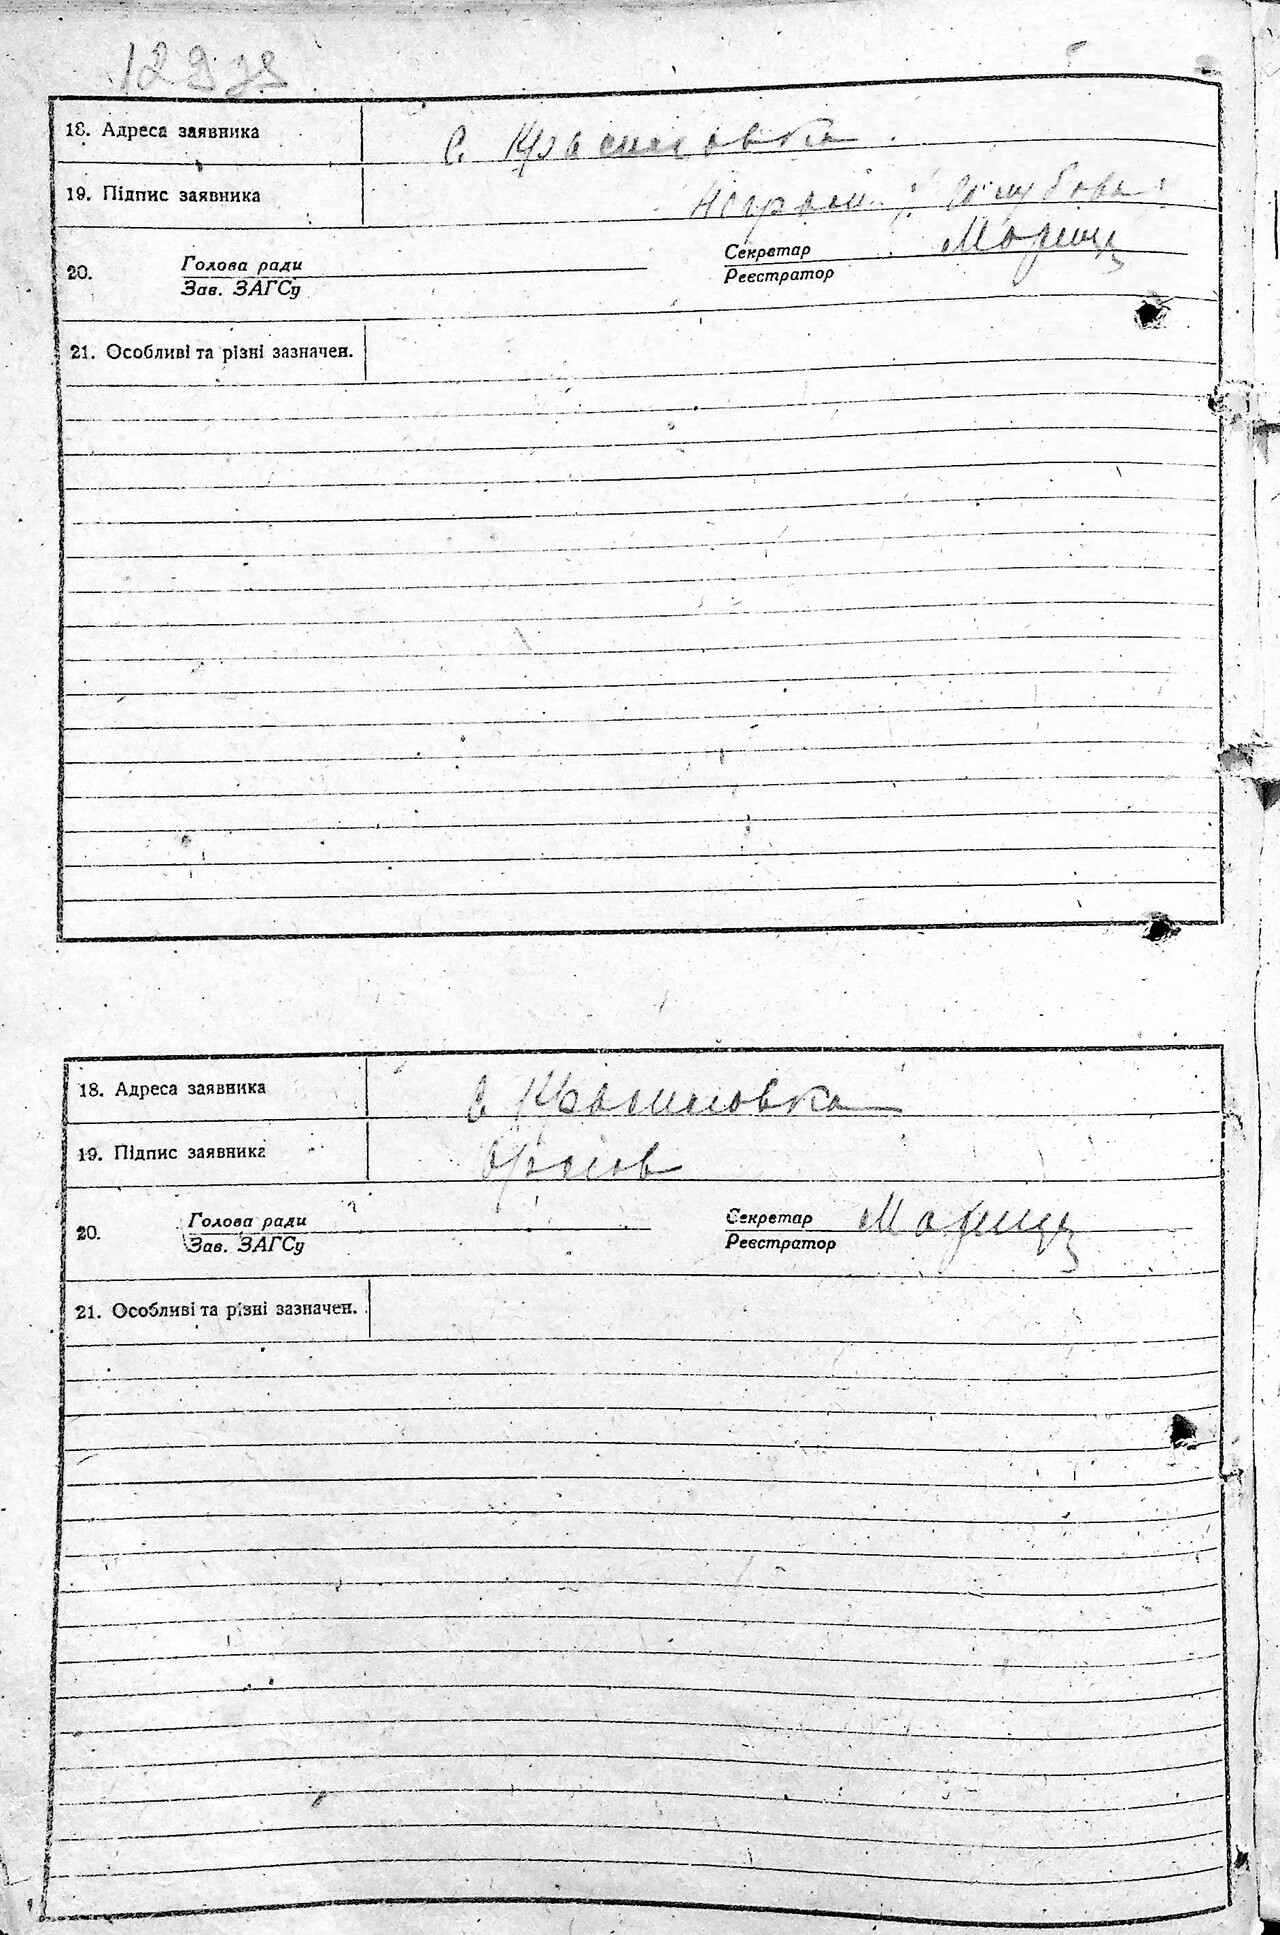 18. Адреса заявника с. Красиловка
19. Підпис заявника Неграм. : Голубова :
20. Голова ради Секретар
Зав. ЗАГСу Реєстратор
21. Особливі та різні зазначен.
18. Адреса заявника с Красиловка
19. Підпис заявника
20. Голова ради Секретар
Зав. ЗАГСу Реєстратор
21. Особливі та різні зазначен.